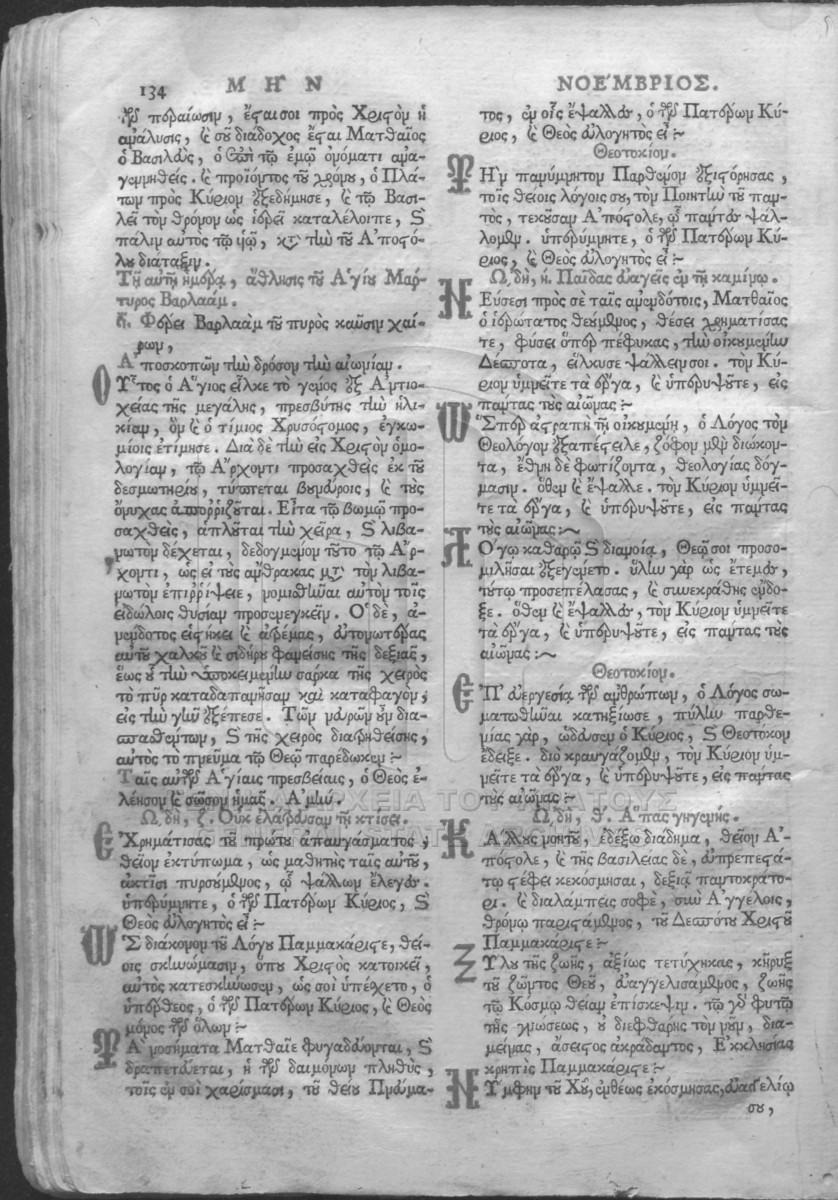 134 ΜΗΝ
ΝΟΕΜΒΡΙΟΣ.
τῶν πατέρων, ἔσται σοι πρὸς Χριστὸν ἡ
ἀνάλυσις, καὶ σου διάδοχος ἔσται Ματθαῖος
ὁ Βασιλεὺς, ὁ ἐπὶ τῷ ἐμῷ ὀνόματι ἀνα-
γεννηθείς. καὶ προϊόντος τοῦ χρόνου, ὁ Πλά-
των πρὸς Κύριον ἐξεδήμησε, καὶ τῷ Βασι-
λεῖ τὸν θρόνον ὡς ἱερεῖ καταλέλοιπε, καὶ
πάλιν αὐτὸς τῷ υἱῷ, κατὰ τὴν τοῦ Ἀποστό-
λου διάταξιν.
Τῇ αὐτῇ ἡμέρᾳ, ἄθλησις τοῦ Ἁγίου Μάρ-
τυρος Βαρλαάμ.
Φέρει Βαρλαὰμ τοῦ πυρὸς καῦσιν χαί-
ρων,
Ἀποσκοπῶν τὴν δρόσον τὴν αἰωνίαν.
Οὗτος ὁ Ἅγιος εἷλκε τὸ γένος ἐξ Ἀντιο-
χείας τῆς μεγάλης, πρεσβύτης τὴν ἡλι-
κίαν, ὃν καὶ ὁ τίμιος Χρυσόστομος, ἐγκω-
μίοις ἐτίμησε. Διὰ δὲ τὴν εἰς Χριστὸν ὁμο-
λογίαν, τῷ Ἄρχοντι προσαχθεὶς ἐκ τοῦ
δεσμωτηρίου, τύπτεται βουνεύροις, καὶ τοὺς
ὄνυχας ἀπορρίζουται. Εἶτα τῷ βωμῷ προ-
σαχθεὶς, ἁπλοῦται τὴν χεῖρα, καὶ λιβα-
νωτὸν δέχεται, δεδογμένον τοῦτο τῷ Ἄρ-
χοντι, ὡς εἰ τοὺς ἄνθρακας μετὰ τὸν λιβα-
νωτὸν ἐπιρρίψειε, νομισθῆναι αὐτὸν τοῖς
εἰδώλοις θυσίαν προσενεγκεῖν. Ὁ δὲ, ἀ-
νένδοτος εἱστήκει καὶ ἀτρέμας, εὐτονωτέρας
αὐτοῦ χαλκοῦ καὶ σιδήρου φανείσης τῆς δεξιᾶς,
ἕως οὗ τὴν ὑποκειμένην σάρκα τῆς χειρὸς
τὸ πῦρ καταδαπανῆσαν καὶ καταφαγὸν,
εἰς τὴν γῆν ἐξέπεσε. Τῶν νεύρων οὖν δια-
σπασθέντων, καὶ τῆς χειρὸς διατρηθείσης,
αὐτὸς τὸ πνεῦμα τῷ Θεῷ παρέδωκεν :~
Ταῖς αὐτῶν Ἁγίαις πρεσβείαις, ὁ Θεὸς ἐ-
λέησον καὶ σῶσον ἡμᾶς. Ἀμήν.
ᾨδὴ, ζ. Οὐκ ἐλάτρευσαν τῇ κτίσει.
Ἐχρημάτισας τοῦ πρώτου ἀπαυγάσματος,
θεῖον ἐκτύπωμα, ὡς μαθητὴς ταῖς αὐτοῦ,
ἀκτῖσι πυρσούμενος, ᾧ ψάλλων ἔλεγες.
ὑπερύμνητε, ὁ τῶν Πατέρων Κύριος, καὶ
Θεὸς εὐλογητὸς εἶ :~
Ὡς διάκονον τοῦ Λόγου Παμμακάριστε, θεί-
οις σκηνώμασιν, ὅπου Χριστὸς κατοικεῖ,
αὐτὸς κατεσκήνωσεν, ὡς σοὶ ὑπέσχετο, ὁ
ὑπέρθεος, ὁ τῶν Πατέρων Κύριος, καὶ Θεὸς
μόνος τῶν ὅλων :~
Τὰ νοσήματα Ματθαῖε φυγαδεύονται, καὶ
δραπετεύεται, ἡ τῶν δαιμόνων πληθὺς,
τοῖς ἐν σοὶ χαρίσμασι, τοῦ θείου Πνεύμα-
τος, ἐν οἷς ἔψαλλες, ὁ τῶν Πατέρων Κύ-
ριος, καὶ Θεὸς εὐλογητὸς εἶ :~
Θεοτοκίον.
Τὴν πανύμνητον Παρθένον ἐξιστόρησας,
τοῖς θείοις λόγοις σου, τὸν Ποιητὴν τοῦ παν-
τὸς, τεκοῦσαν Ἀπόστολε, ᾧ πάντες ψάλ-
λομεν. ὑπερύμνητε, ὁ τῶν Πατέρων Κύ-
ριος, καὶ Θεὸς εὐλογητὸς εἶ :~
ᾨδὴ, η. Παῖδας εὐαγεῖς ἐν τῇ καμίνῳ.
Νεύσεσι πρὸς σὲ ταῖς ἀνενδότοις, Ματθαῖος
ὁ ἱερώτατος θεούμενος, θέσει χρηματίσας
τε, φύσει ὅπερ πέφυκας, τὴν οἰκουμένην
Δέσποτα, εἵλκυσε ψάλλειν σοι. τὸν Κύ-
ριον ὑμνεῖτε τὰ ἔργα, καὶ ὑπερυψοῦτε, εἰς
πάντας τοὺς αἰῶνας :~
Ὥσπερ ἀστραπὴ τῇ οἰκουμένῃ, ὁ Λόγος τὸν
Θεολόγον ἐξαπέστειλε, ζόφον μὲν διώκον-
τα, ἔθνη δὲ φωτίζοντα, θεολογίας δόγ-
μασιν. ὅθεν καὶ ἔψαλλε. τὸν Κύριον ὑμνεῖ-
τε τὰ ἔργα, καὶ ὑπερυψοῦτε, εἰς πάντας
τοὺς αἰῶνας :~
Λόγῳ καθαρῷ καὶ διανοίᾳ, Θεῷ σοι προσο-
μιλῆσαι ἐξεγένετο. ὕλην γὰρ ὡς ἔτεμες,
τούτῳ προσεπέλασας, καὶ συνεκράθης ἔνδο-
ξε. ὅθεν καὶ ἔψαλλες, τὸν Κύριον ὑμνεῖτε
τὰ ἔργα, καὶ ὑπερυψοῦτε, εἰς πάντας τοὺς
αἰῶνας :~
Θεοτοκίον.
Ἐπ' εὐεργεσίᾳ τῶν ἀνθρώπων, ὁ Λόγος σω-
ματωθῆναι κατηξίωσε, πύλην παρθε-
νίας γὰρ, ὥδευσεν ὁ Κύριος, καὶ Θεοτόκον
ἔδειξε. διὸ κραυγάζομεν, τὸν Κύριον ὑμ-
νεῖτε τὰ ἔργα, καὶ ὑπερυψοῦτε, εἰς πάντας
τοὺς αἰῶνας :~
ᾨδὴ, θ. Ἅπας γηγενής.
Κάλλους νοητοῦ, ἐδέξω διάδημα, θεῖον Ἀ-
πόστολε, καὶ τῆς βασιλείας δὲ, εὐπρεπεστά-
τῳ στέφει κεκόσμησαι, δεξιᾷ παντοκράτο-
ρι. καὶ διαλάμπεις σοφὲ, σὺν Ἀγγέλοις,
θρόνῳ παριστάμενος, τοῦ Δεσπότου Χριστοῦ
Παμμακάριστε :~
Ξύλου τῆς ζωῆς, ἀξίως τετύχηκας, κῆρυξ
τοῦ ζῶντος Θεοῦ, εὐαγγελισάμενος, ζωῆς
τῷ Κόσμῳ θείαν ἐπίσκεψιν. τῷ γὰρ φυτῷ
τῆς γνώσεως, οὐ διεφθάρης τὸν νοῦν, δια-
μείνας, ἄσειστος ἀκράδαντος, Ἐκκλησίας
κρηπὶς Παμμακάριστε :~
Νύμφην τοῦ Χῦ, ἐνθέως ἐκόσμησας, εὐαγγελίῳ
σου,
ΓΕΝΙΚΑ ΑΡΧΕΙΑ ΤΟΥ ΚΡΑΤΟΥΣ
GENERAL STATE ARCHIVES